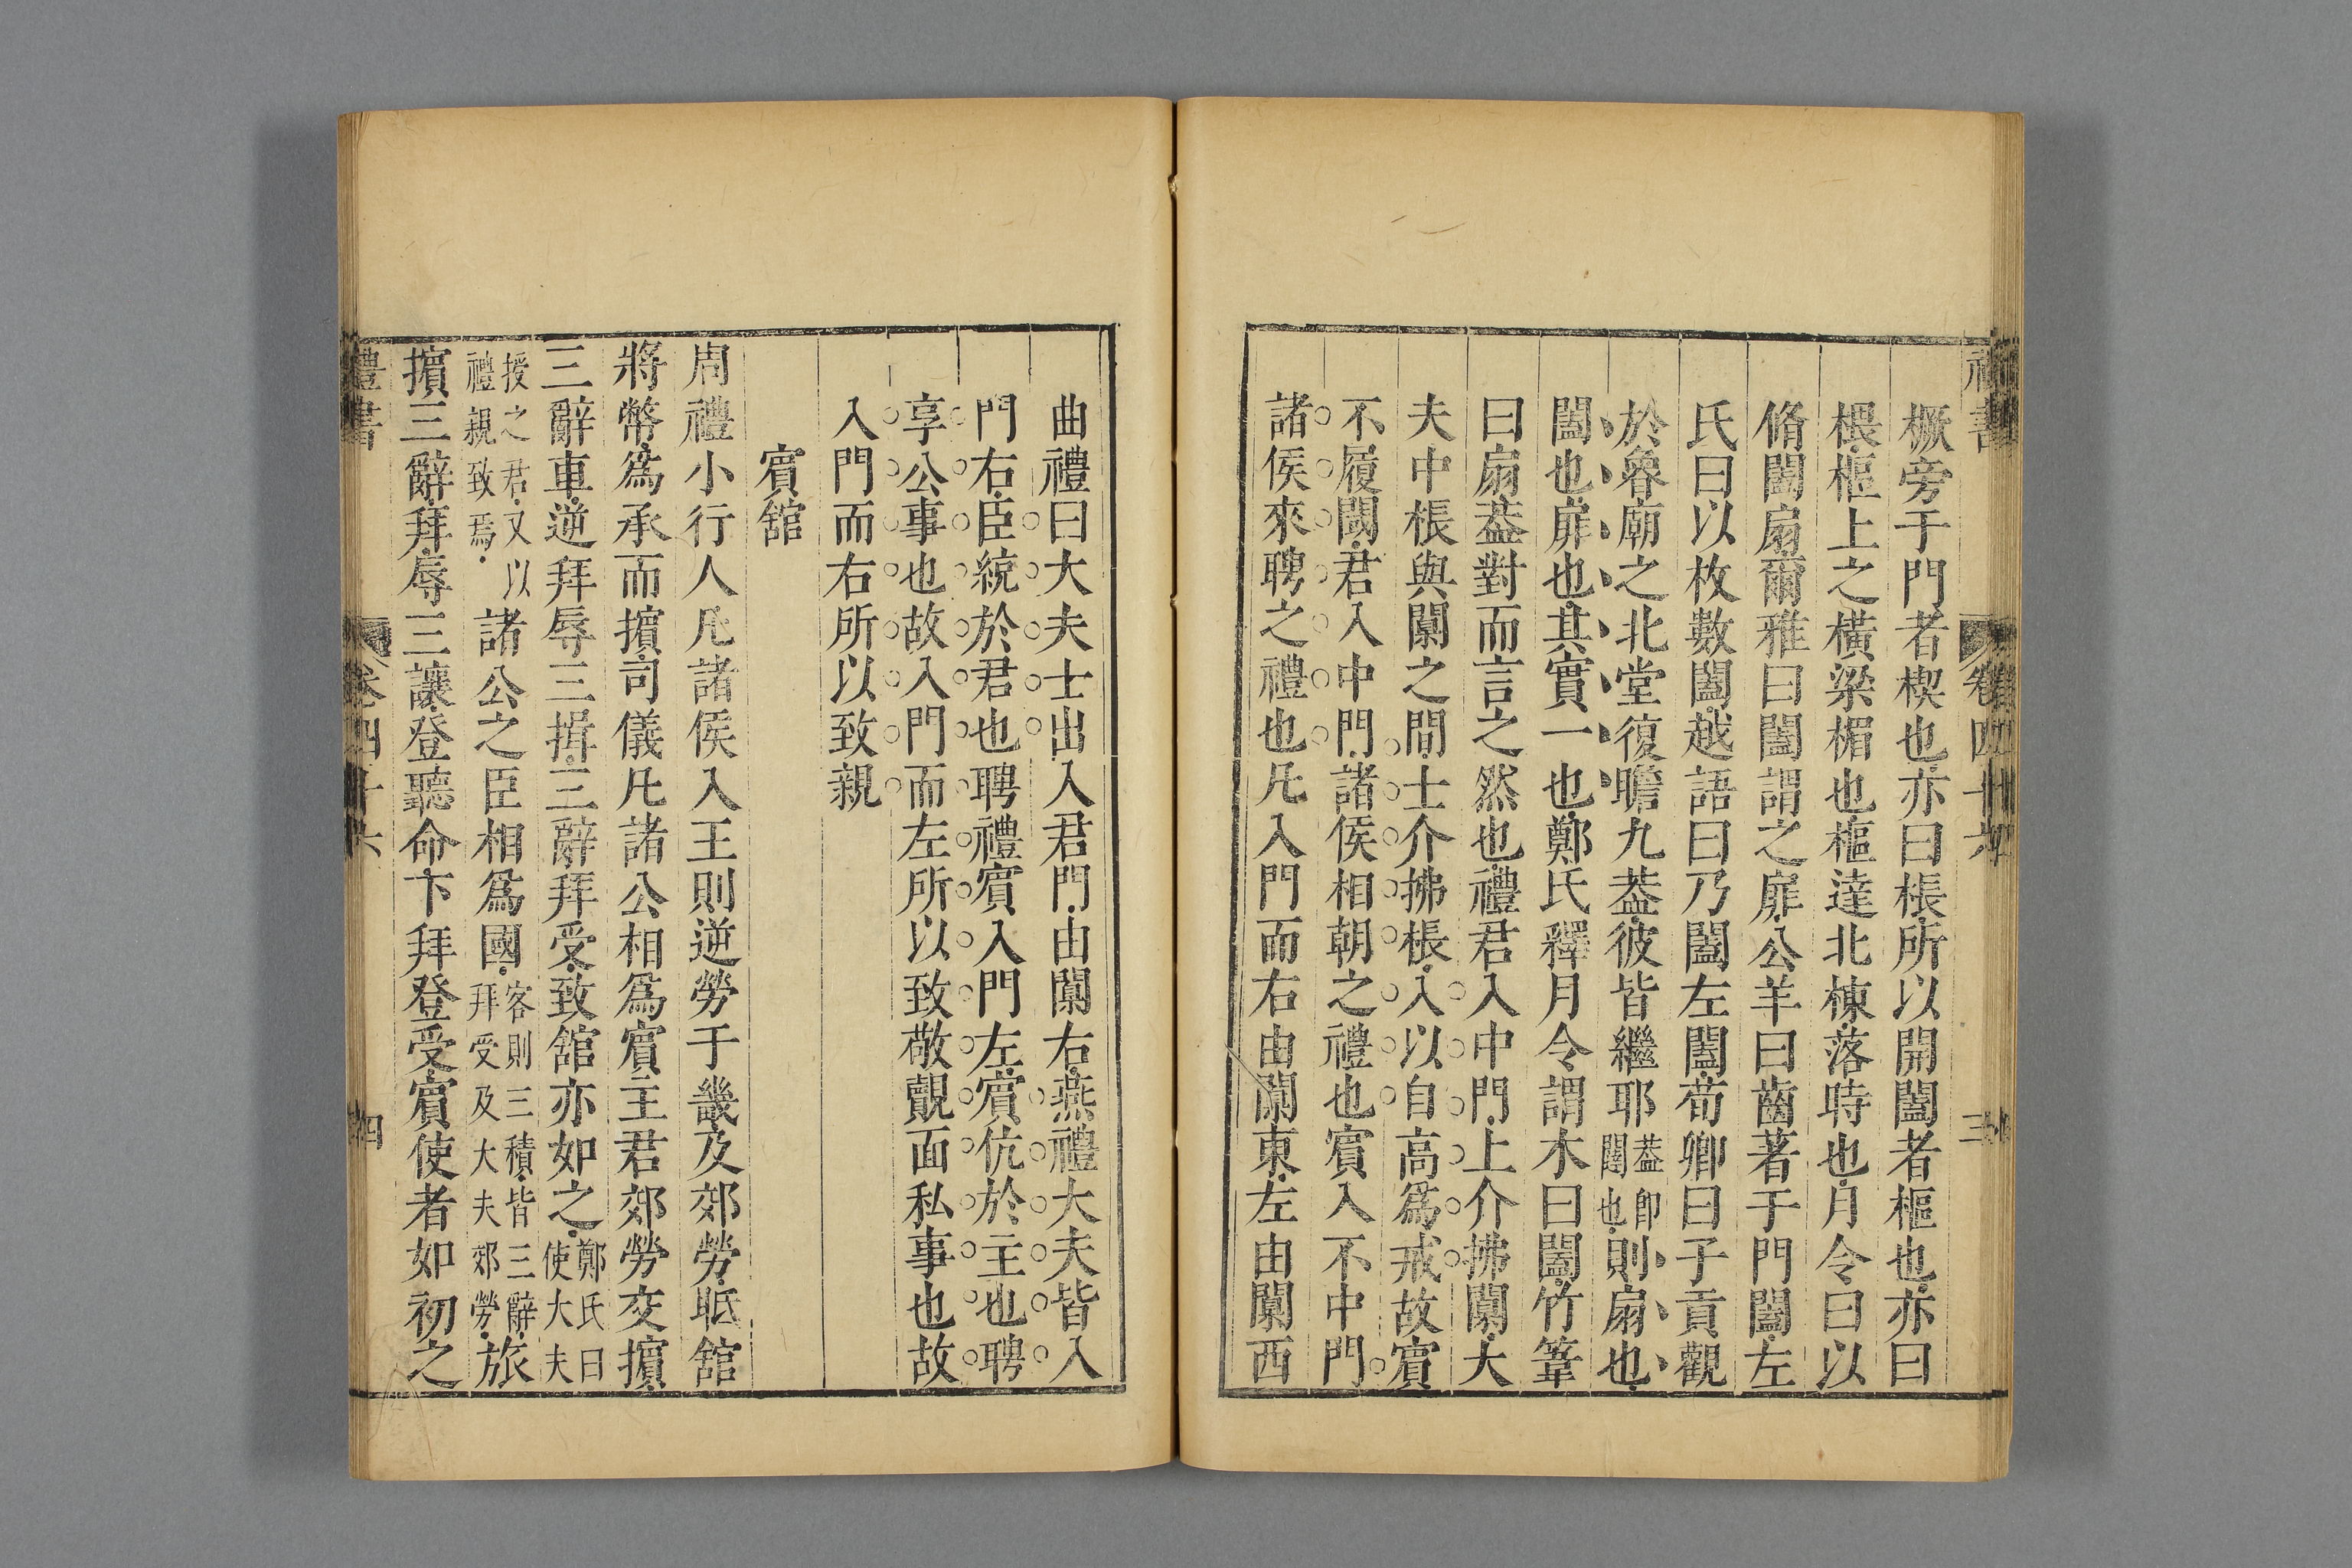 禮書 卷四十六 三
橛旁于門者楔也亦曰棖所以開闔者樞也亦曰
椳樞上之橫梁楣也樞達北棟落時也月令曰以
脩闔扇爾雅曰闔謂之扉公羊曰齒著于門闔左
氏曰以枚數闔越語曰乃闔左闔荀卿曰子貢觀
於魯廟之北堂復瞻九葢彼皆繼耶葢即闔也則扇也
闔也扉也其實一也鄭氏釋月令謂木曰闔竹葦
曰扇葢對而言之然也禮君入中門上介拂闑大
夫中棖與闑之間士介拂棖入以自高爲戒故賓
不履閾君入中門諸侯相朝之禮也賓入不中門
諸侯來聘之禮也凡入門而右由闑東左由闑西
曲禮曰大夫士出入君門由闑右燕禮大夫皆入
門右臣統於君也聘禮賓入門左賓伉於主也聘
享公事也故入門而左所以致敬覿面私事也故
入門而右所以致親
賓舘
周禮小行人凡諸侯入王則逆勞于畿及郊勞眡舘
將幣爲承而擯司儀凡諸公相爲賓主君郊勞交擯
三辭車逆拜辱三揖三辭拜受致舘亦如之鄭氏曰使大夫
授之君又以禮親致焉諸公之臣相爲國客則三積皆三辭拜受及大夫郊勞旅
擯三辭拜辱三讓登聽命下拜登受賓使者如初之
禮書 卷四十六 四